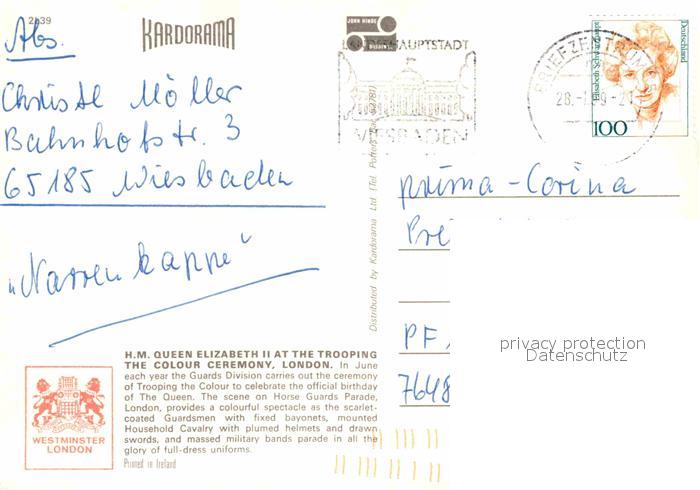 2839
KARDORAMA
JOHN HINDE
LANDESHAUPTSTADT
WIESBADEN
BRIEFZENTRUM
28.-1.99-21
Elisabeth Schwarzhaupt
Deutschland
100
Abs.
Christl Möller
Bahnhofstr. 3
65185 Wiesbaden
„Narrenkappe"
prima - Corina
PF
7648
privacy protection
Datenschutz
Distributed by Kardorama Ltd (Tel. Potters Bar 52781)
H.M. QUEEN ELIZABETH II AT THE TROOPING
THE COLOUR CEREMONY, LONDON. In June
each year the Guards Division carries out the ceremony
of Trooping the Colour to celebrate the official birthday
of The Queen. The scene on Horse Guards Parade,
London, provides a colourful spectacle as the scarlet-
coated Guardsmen with fixed bayonets, mounted
Household Cavalry with plumed helmets and drawn
swords, and massed military bands parade in all the
glory of full-dress uniforms.
Printed in Ireland
WESTMINSTER
LONDON